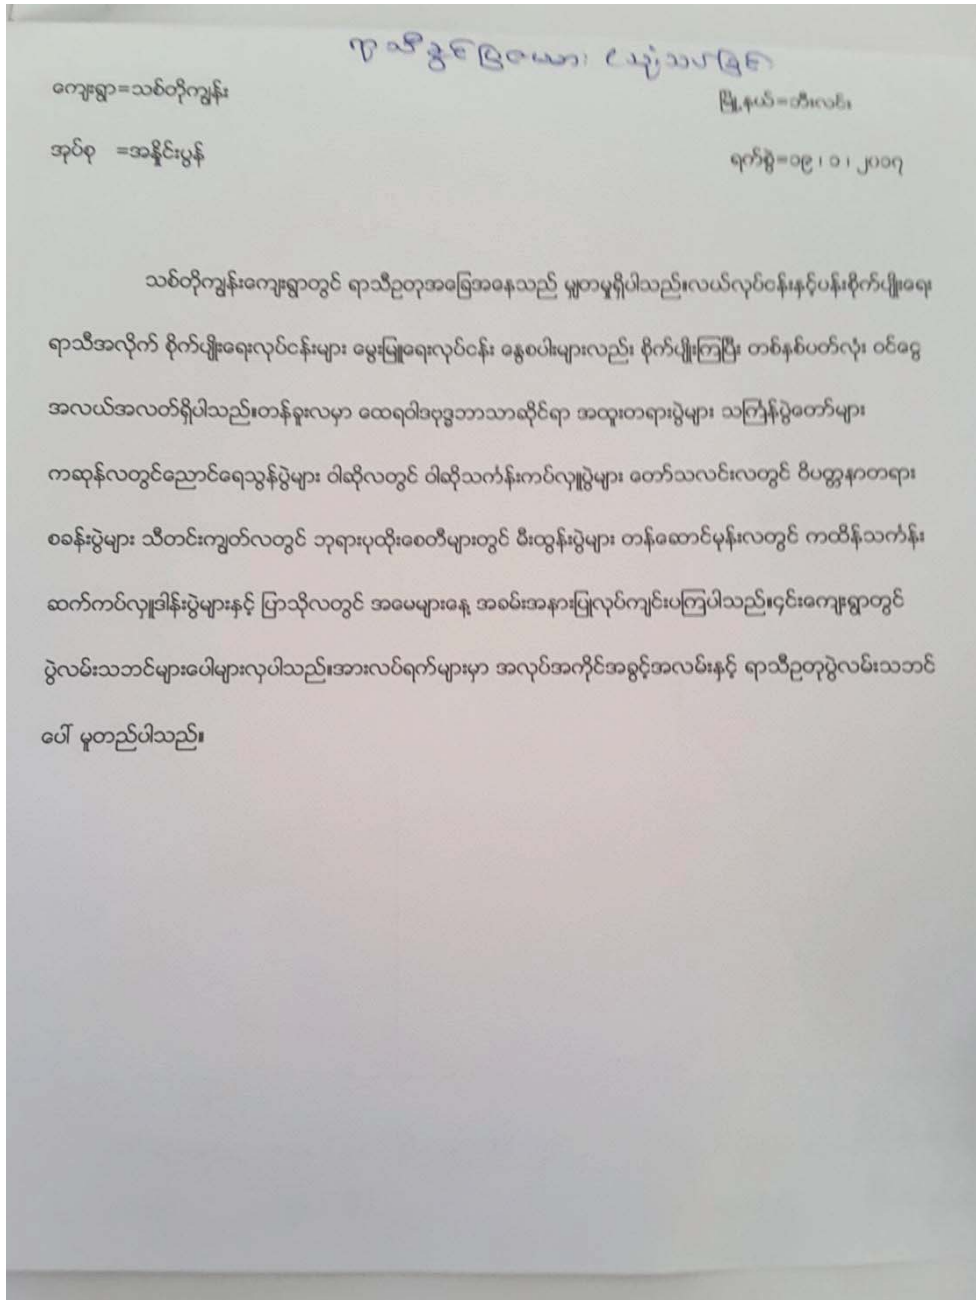 ရာသီခွင်ပြဇယား
ကျေးရွာ=သစ်တိုကျွန်း
မြို့နယ်=ဘီးလင်း
အုပ်စု =အနှိုင်းပွန်
ရက်စွဲ=၁၉၊၁၊၂၀၁၇
သစ်တိုကျွန်းကျေးရွာတွင် ရာသီဥတုအခြေအနေသည် မျှတမှုရှိပါသည်။လယ်လုပ်ငန်းနှင့်ပန်းစိုက်ပျိုးရေး
ရာသီအလိုက် စိုက်ပျိုးရေးလုပ်ငန်းများ မွေးမြူရေးလုပ်ငန်း နွေစပါးများလည်း စိုက်ပျိုးကြပြီး တစ်နှစ်ပတ်လုံး ဝင်ငွေ
အလယ်အလတ်ရှိပါသည်။တန်ခူးလမှာ ထေရဝါဒဗုဒ္ဓဘာသာဆိုင်ရာ အထူးတရားပွဲများ သင်္ကြန်ပွဲတော်များ
ကဆုန်လတွင်ညောင်ရေသွန်ပွဲများ ဝါဆိုလတွင် ဝါဆိုသင်္ကန်းကပ်လှူပွဲများ တော်သလင်းလတွင် ဝိပဿနာတရား
စခန်းပွဲများ သီတင်းကျွတ်လတွင် ဘုရားပုထိုးစေတီများတွင် မီးထွန်းပွဲများ တန်ဆောင်မုန်းလတွင် ကထိန်သင်္ကန်း
ဆက်ကပ်လှူဒါန်းပွဲများနှင့် ပြာသိုလတွင် အမေများနေ့ အခမ်းအနားပြုလုပ်ကျင်းပကြပါသည်။၄င်းကျေးရွာတွင်
ပွဲလမ်းသဘင်များပေါများလှပါသည်။အားလပ်ရက်များမှာ အလုပ်အကိုင်အခွင့်အလမ်းနှင့် ရာသီဥတုပွဲလမ်းသဘင်
ပေါ် မူတည်ပါသည်။